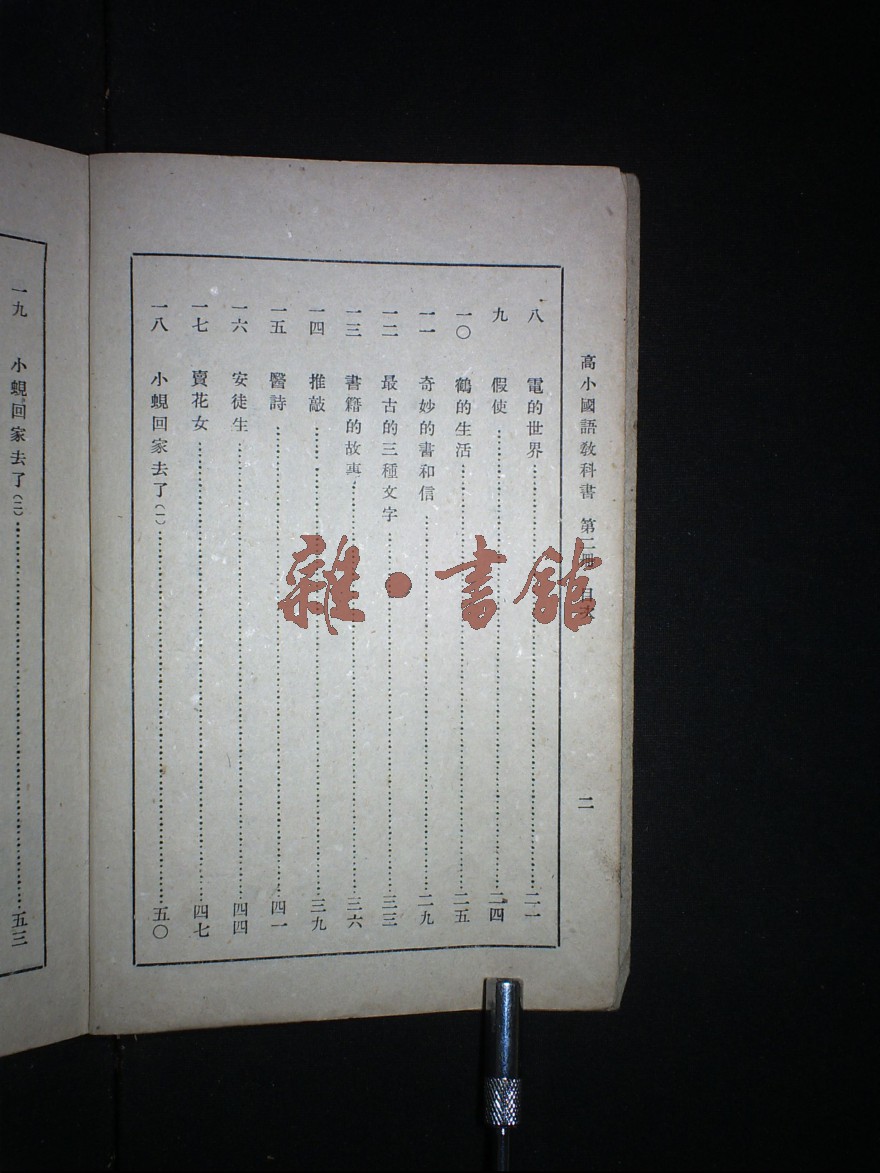 高小國語教科書 第二冊 目次 二
八 電的世界 二一
九 假使 二四
一〇 鶴的生活 二五
一一 奇妙的書和信 二九
一二 最古的三種文字 三三
一三 書籍的故事 三六
一四 推敲 三九
一五 醫詩 四一
一六 安徒生 四四
一七 賣花女 四七
一八 小蜆回家去了(一) 五〇
一九 小蜆回家去了(二) 五三
雜·書館